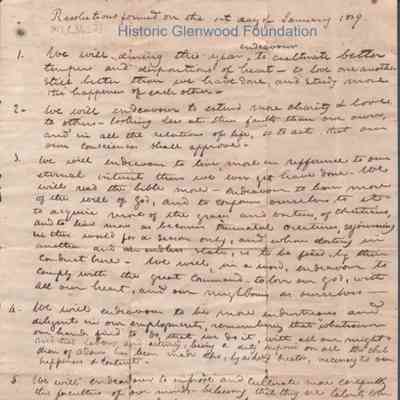 Resolutions formed on the 1st day of January 1829.
Historic Glenwood Foundation
endeavour
1. We will, during this year, to cultivate better
tempers and dispositions of heart - to love one another
still better than we have done, and study more
the happiness of each other.-
2- We will endeavour to extend more charity & love,
to others - looking less at their faults than our own,
and in all the relations of life, so to act that our
own consciences shall approve.-
3. We will endeavour to live more in reference to our
eternal interests than we have yet done. We
will read the bible more - endeavour to know more
of the will of God, and to conform ourselves to it -
to acquire more of the graces and virtues, of christians,
and to live more as becomes immortal creatures, sojourning
in this world for a season only, and whose destiny in
another and an endless state, is to be fixed by their
conduct here - We will, in a word, endeavour to
comply with the great command - to love our God, with
all our heart, and our neighbour as ourselves -
4- We will endeavour to be more industrious and
diligent in our employments, remembering that whatsoever
our hands find to do, that we do it with all our might -
and that labour, and activity, being a duty imposed on all the chil-
dren of adam has been made also, by a kind necessary to our
happiness & content.
5 We will endeavour to improve and cultivate more carefully
the faculties of our minds - believing that they are talents